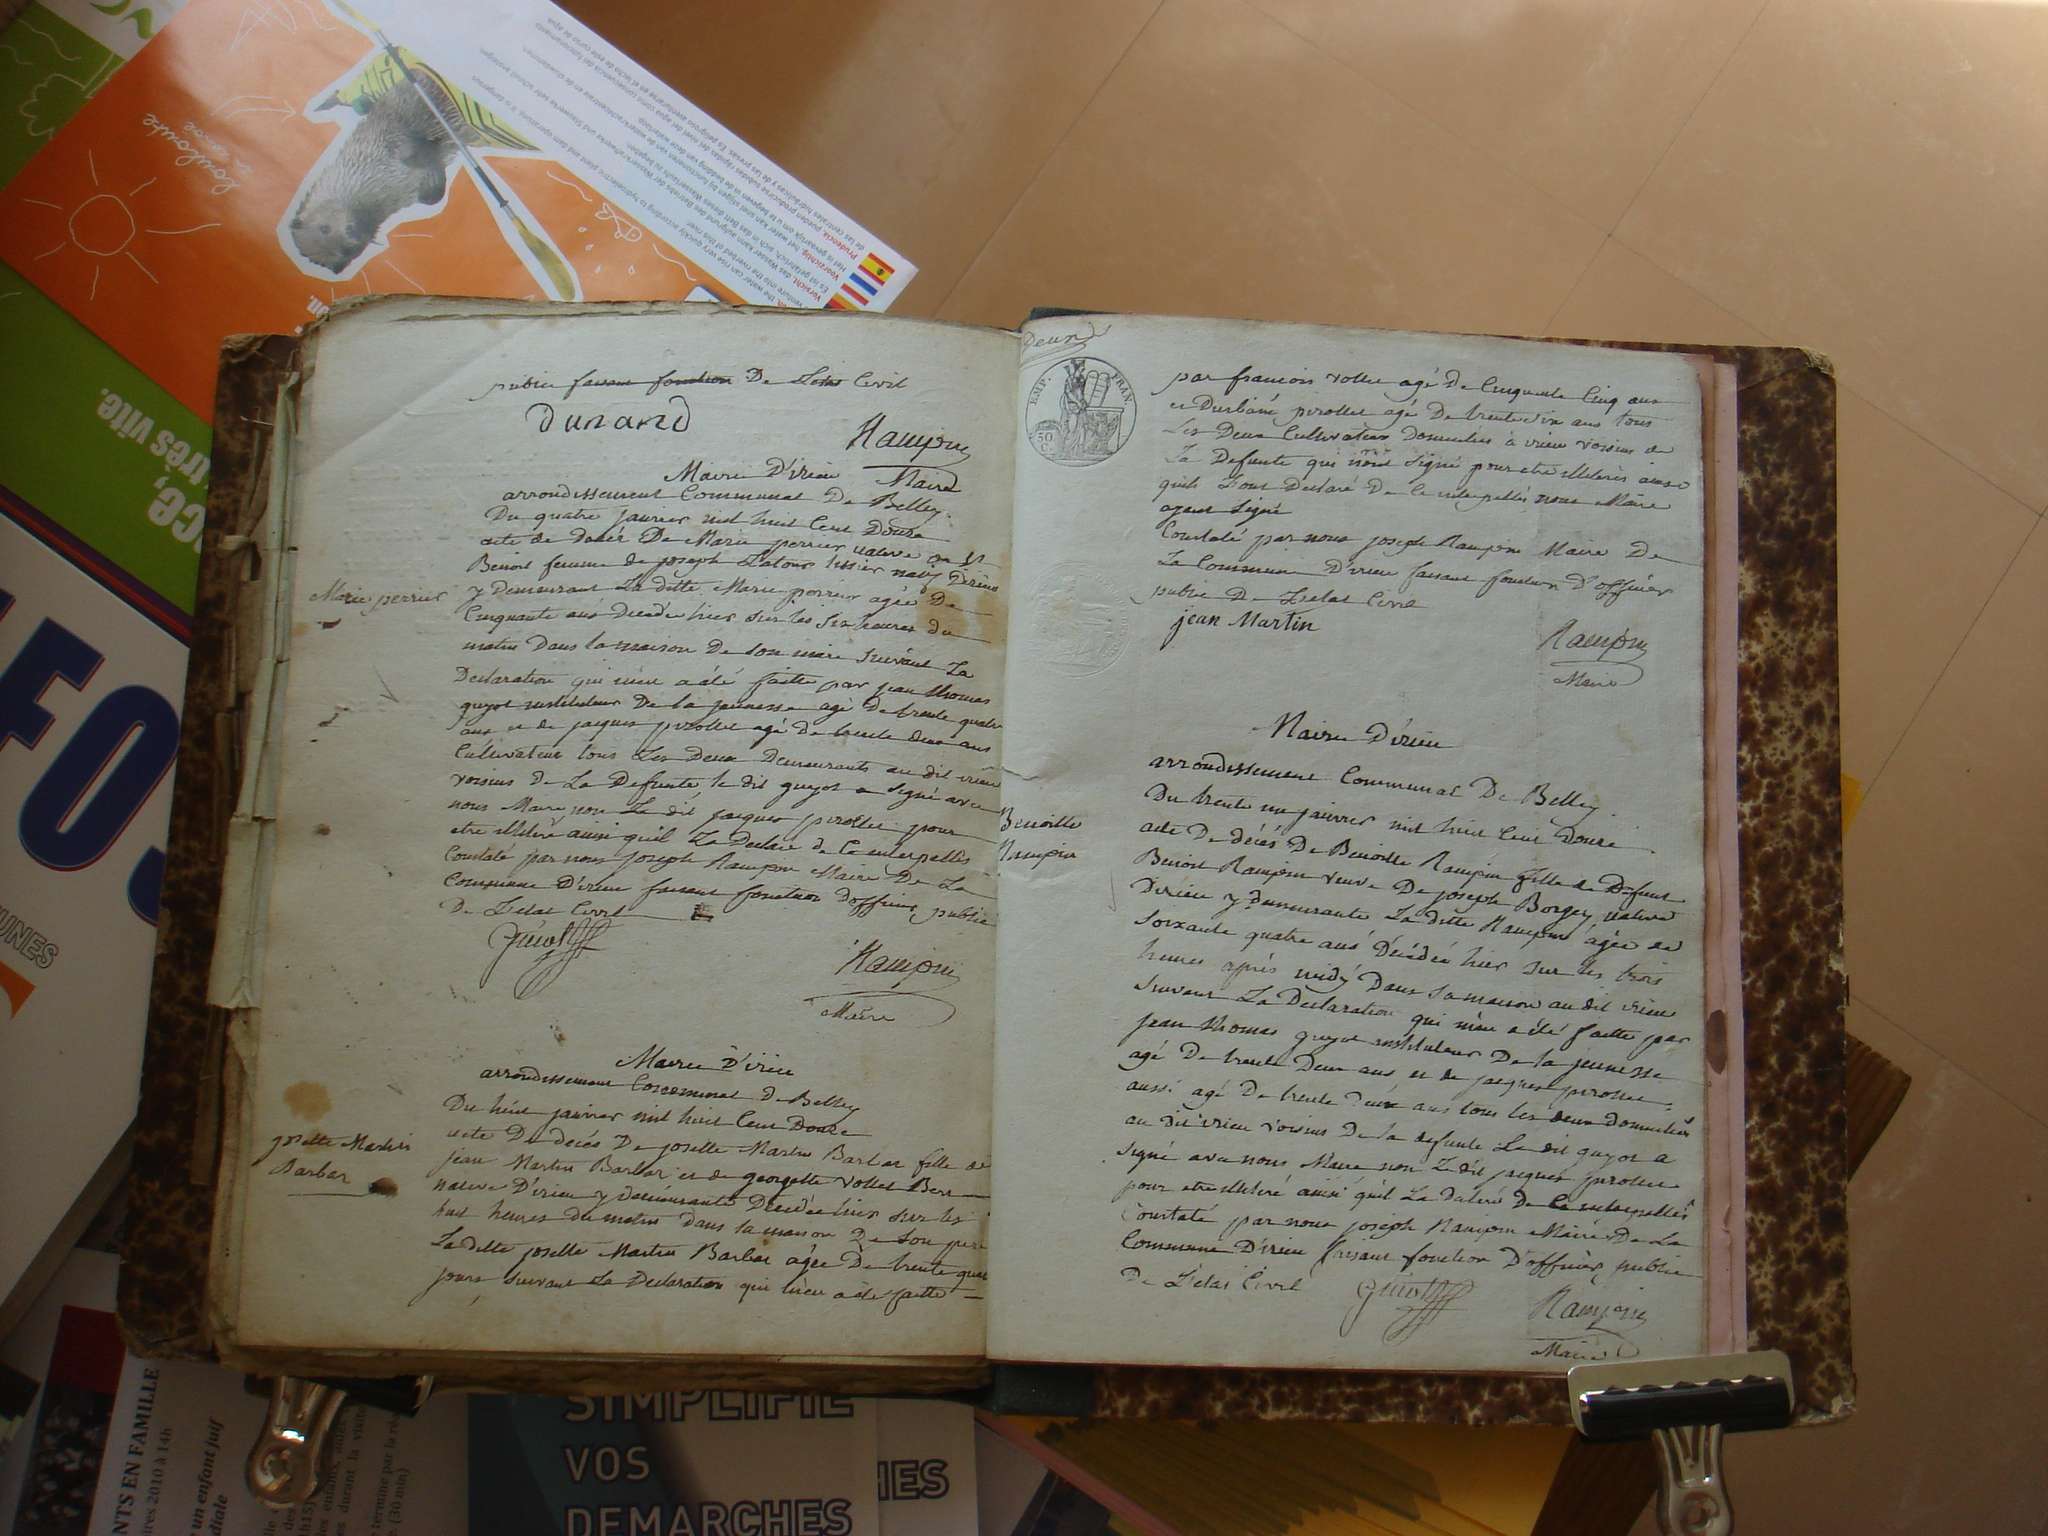 public faisant fonction De Letat Civil
Dunand
Rampin
Maire
Mairie D'irieu
arrondissement Communal De Belley
Du quatre janvier mil huit Cent Douze
acte de décès De Marie perrier native
Benoit femme de joseph Latour tissier
y Demeurant La ditte Marie perrier agée De
Marie perrier
Cinquante ans Decedée hier sur les six heures du
matin Dans la maison De son mari suivant La
Declaration qui m'en a été faitte par jean thomas
guyot instituteur De la jeunesse agé De trente quatre
ans et de jacques pirollet agé de trente deux ans
Cultivateur tous Les Deux Demeurants au dit irieu
voisins de La Defunte, le dit guyot a signé avec
nous Maire, non Le dit jacques pirollet pour
etre illitéré ainsi qu'il La Declaré de Ce interpellé
Constaté par nous joseph Rampin Maire De La
Commune D'irieu faisant fonction D'officier public
De L'etat Civil
Guiot
Rampin
Maire
Mairie D'irieu
arrondissement Communal De Belley
Du huit janvier mil huit Cent Douze
acte De décès De josette Martin Barbar fille de
josette Martin
Barbar
jean Martin Barbar et de georgette vollet
native D'irieu y demeurante Decedée hier sur les
huit heures du matin dans la maison De son pere
La ditte josette Martin Barbar agée De trente quatre
jours, suivant La Declaration qui m'en a été faitte
Deux
EMP. FRAN.
50
C.
par francois vollet agé De Cinquante Cinq ans
et D'urbain pirollet agé De trente six ans tous
Les Deux Cultivateurs Domiciliés à irieu voisins de
La Defunte qui n'ont signé pour etre illitérés ainsi
qu'ils L'ont Declaré De Ce interpellés nous Maire
ayant signé
Constaté par nous joseph Rampin Maire De
La Commune D'irieu faisant fonction D'officier
public De L'etat Civil
jean Martin
Rampin
Maire
Mairie D'irieu
arrondissement Communal De Belley
Du trente un janvier mil huit Cent Douze
Benoitte
Rampin
acte De décès De Benoitte Rampin fille de Defunt
Benoit Rampin veuve De joseph Borgey native
D'irieu y demeurante La ditte Rampin agée de
soixante quatre ans Décédée hier sur les trois
heures après midy Dans sa maison au dit irieu
suivant La Declaration qui m'en a été faitte par
jean thomas guyot instituteur De la jeunesse
agé De trente Deux ans et de jacques pirollet
aussi agé De trente Deux ans tous les deux Domiciliés
au dit irieu voisins De la defunte Le dit guyot a
signé avec nous Maire non Le dit jacques pirollet
pour etre illitéré ainsi qu'il La Declaré De Ce interpellé
Constaté par nous joseph Rampin Maire De La
Commune D'irieu faisant fonction D'officier public
De L'etat Civil
Guiot
Rampin
Maire
toulouse
Prudencia
Voorzichtig
Vorsicht
très vite.
JEUNES
SIMPLIFIE
VOS
DEMARCHES
un enfant juif